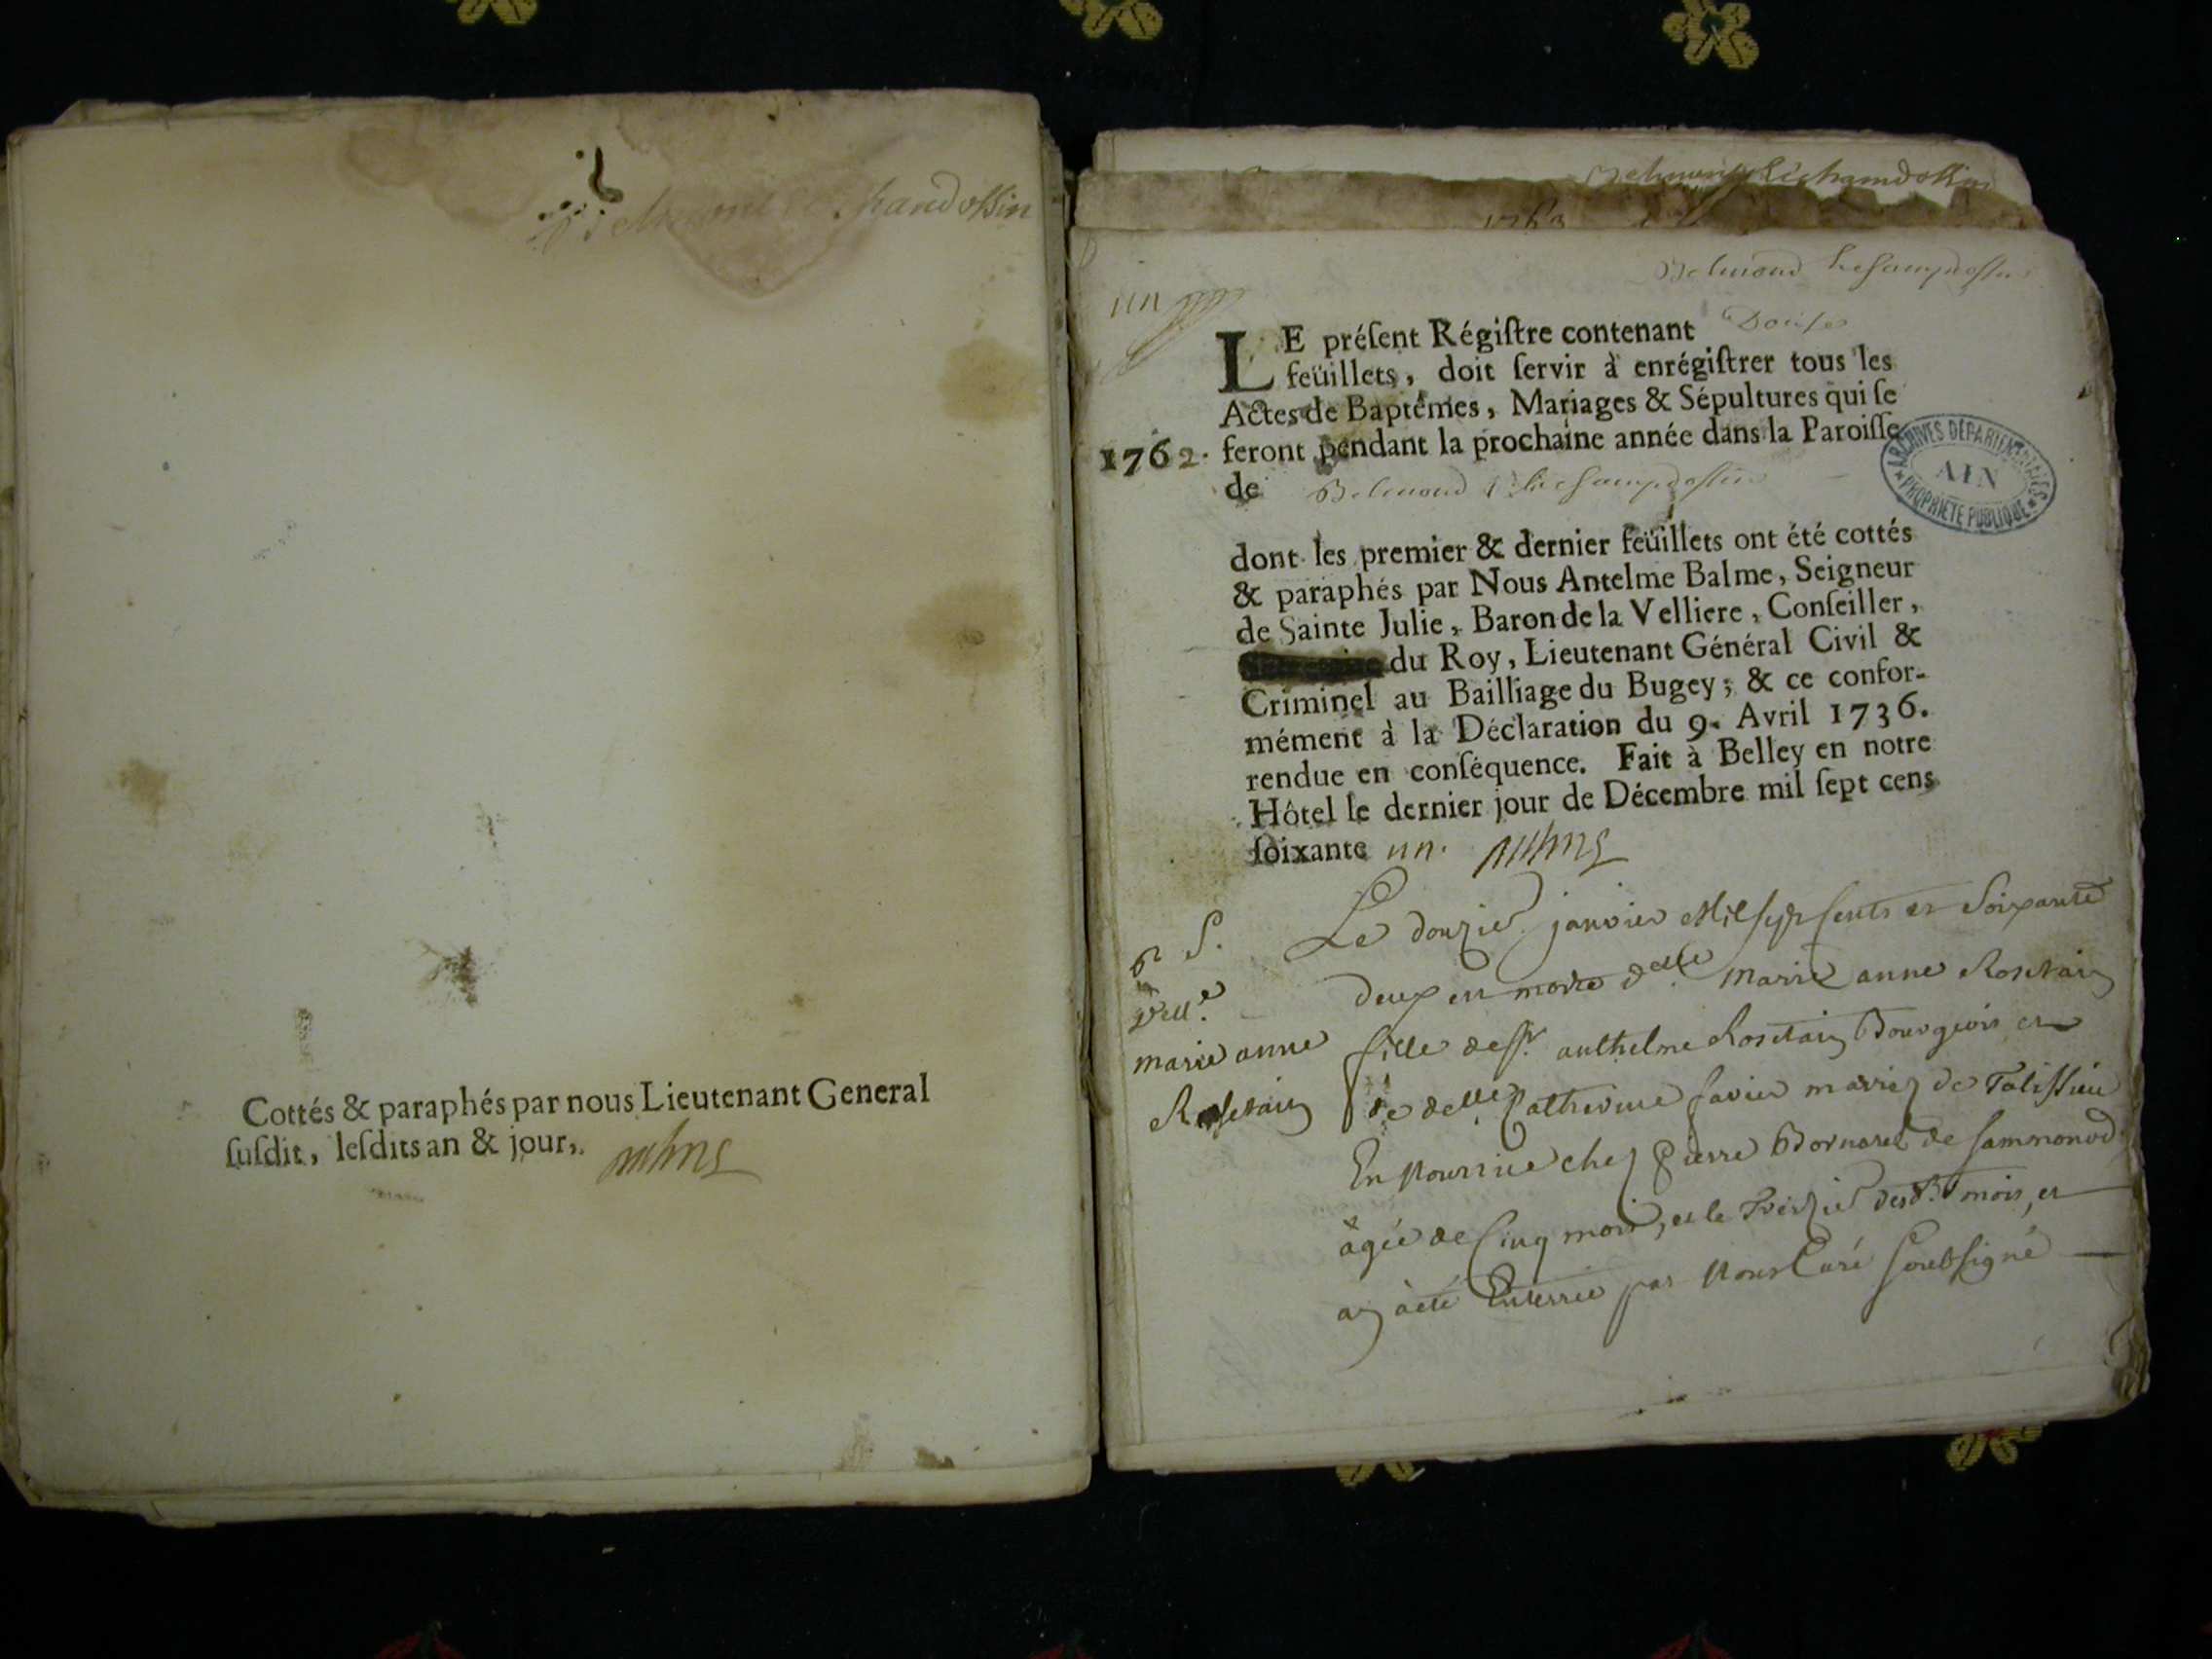 Cottés & paraphés par nous Lieutenant General
ſuſdit, leſdits an & jour,
1763
un
LE préſent Régiſtre contenant Douſe
feüillets, doit ſervir à enrégiſtrer tous les
Actes de Baptêmes, Mariages & Sépultures qui ſe
1762. feront pendant la prochaine année dans la Paroiſſe
de Belmond
ARCHIVES DÉPARTEMENTALES
AIN
PROPRIÉTÉ PUBLIQUE
dont les premier & dernier feüillets ont été cottés
& paraphés par Nous Antelme Balme, Seigneur
de Sainte Julie, Baron de la Velliere, Conſeiller,
du Roy, Lieutenant Général Civil &
Criminel au Bailliage du Bugey; & ce confor-
mément à la Déclaration du 9. Avril 1736.
rendue en conſéquence. Fait à Belley en notre
Hôtel le dernier jour de Décembre mil ſept cens
ſoixante un.
S.
delle
marie anne
Rosetain
Le douzie janvier Mil sept cents et soixante
deux est morte delle marie anne Rosetain
fille de sr. anthelme Rosetain Bourgeois et
de delle Catherine favier mariez de Talissieu
En Nourrice chez pierre Bornarel de sammonod
âgée de Cinq mois, et le Treizie desd. mois, et
an, à été Enterrée par Nous Curé soubsigné